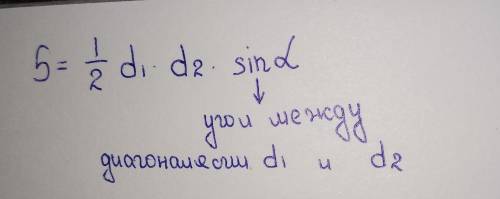 S = 1/2 d₁ · d₂ · sinα
↓
угол между
диагоналями d₁ и d₂